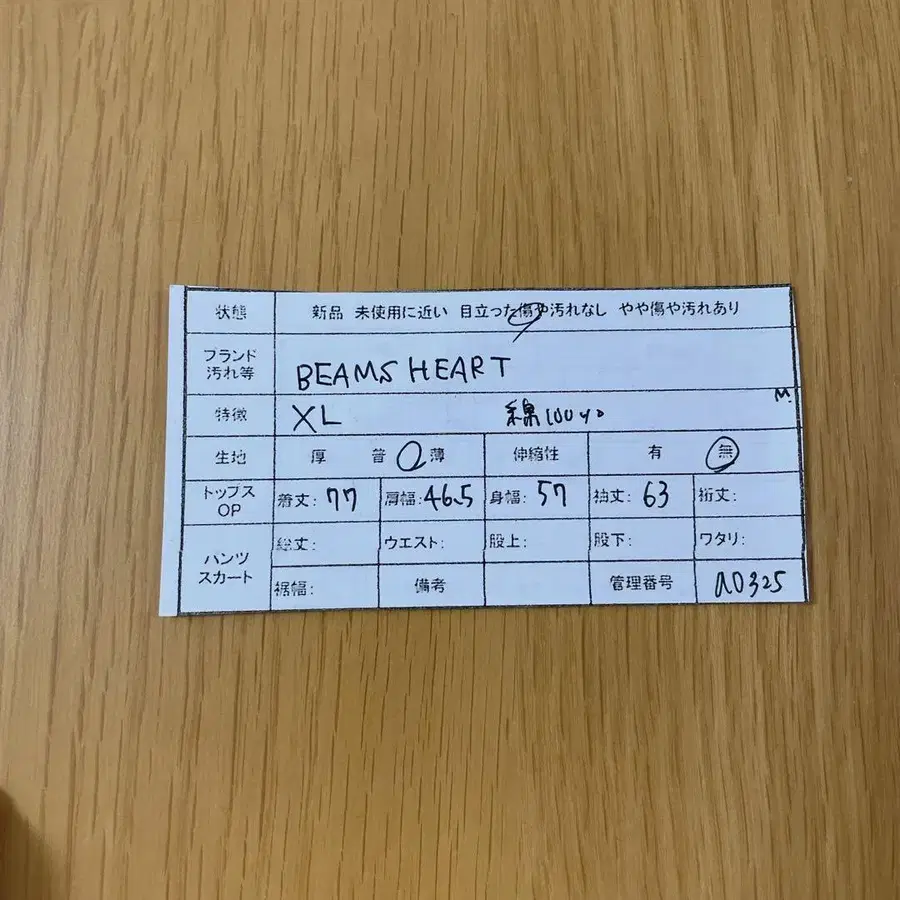 状態 新品 未使用に近い 目立った傷や汚れなし やや傷や汚れあり
ブランド
汚れ等 BEAMS HEART
M.
特徴 XL 綿100%
生地 厚 普 薄 伸縮性 有 無
トップス
OP 着丈: 77 肩幅: 46.5 身幅: 57 袖丈: 63 裄丈:
パンツ
スカート 総丈: ウエスト: 股上: 股下: ワタリ:
裾幅: 備考 管理番号 a0325